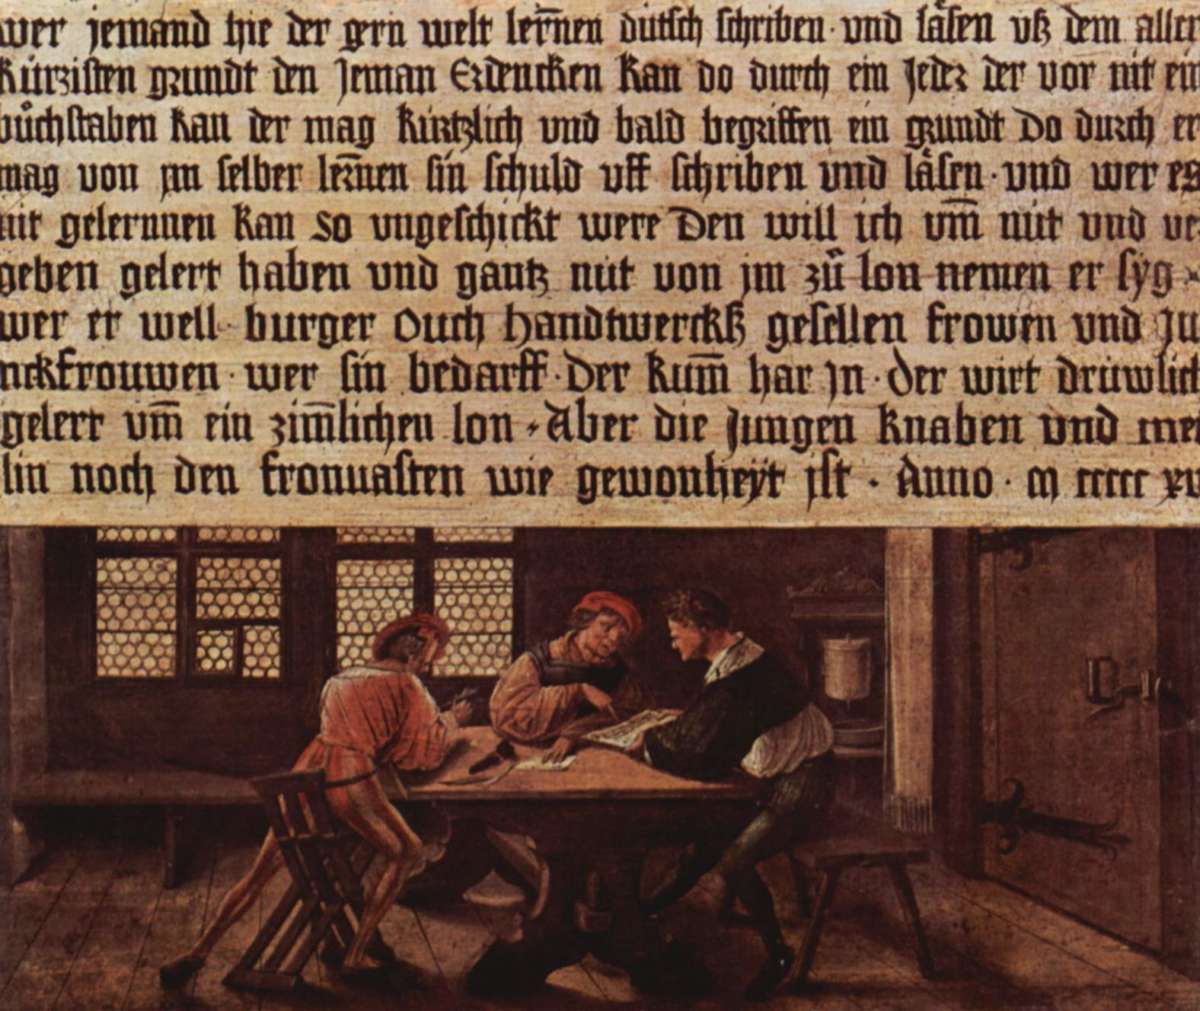 wer jemand hie der gern welt lerñen dutsch schriben und läsen uß dem aller
kürzisten grundt den Jeman Erdencken kan do durch ein jeder der vor nit ein
bůchstaben kan der mag kürtzlich und bald begriffen ein grundt do durch er
mag von jm selber lerñen sin schuld uff schriben und läsen · und wer es
nit gelernnen kan so ungeschickt were Den will ich um̄ nüt und ve
geben gelert haben und gantz nüt von jm zů lon nemen er syg
wer er well · burger Ouch handtwerckß gesellen frowen und ju
nckfrouwen · wer sin bedarff · Der kum̄ har jn · der wirt drüwlich
gelert um̄ ein zim̄lichen lon · Aber die jungen knaben und mei
lin noch den fronuasten wie gewonheÿt ist · Anno · m ccccc xv